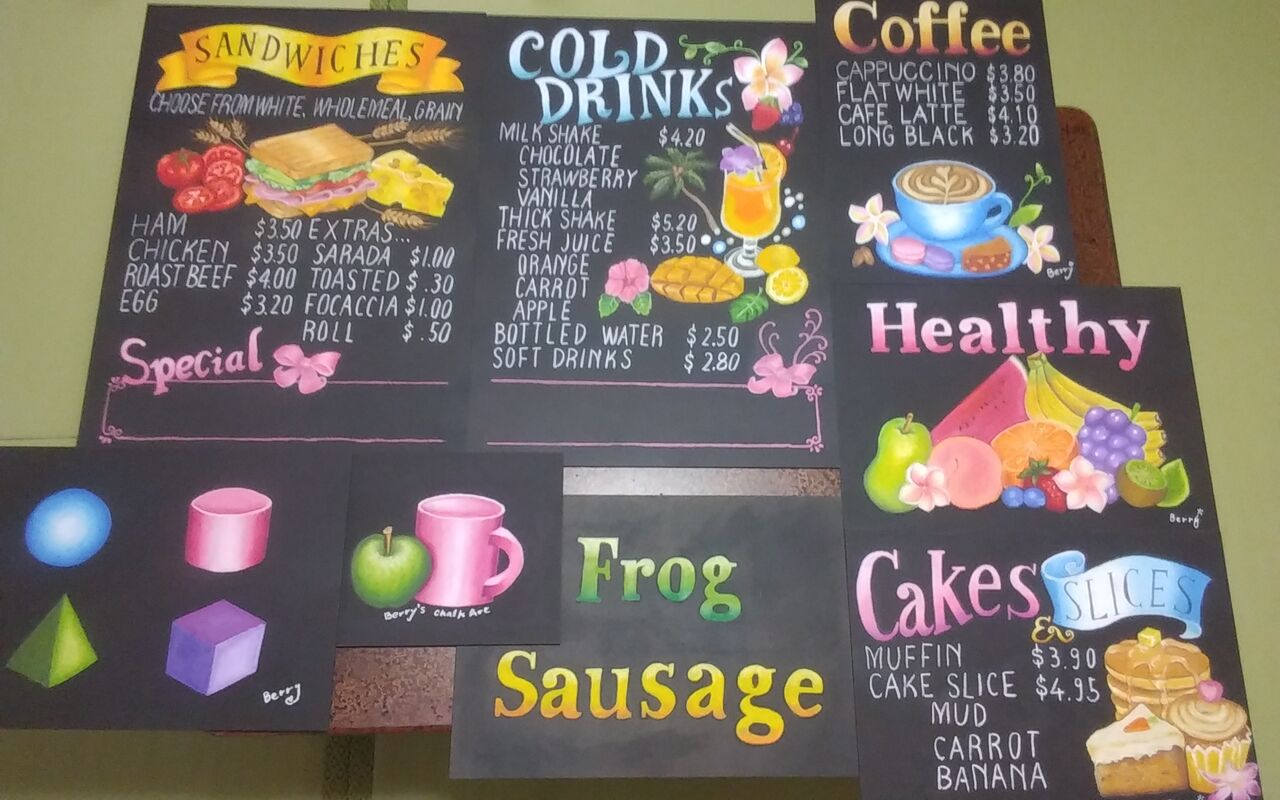 SANDWICHES
CHOOSE FROM WHITE, WHOLEMEAL, GRAIN
HAM $3.50
CHICKEN $3.50
ROAST BEEF $4.00
EGG $3.20
EXTRAS...
SARADA $1.00
TOASTED $.30
FOCACCIA $1.00
ROLL $.50
Special
COLD
DRINKS
MILK SHAKE $4.20
CHOCOLATE
STRAWBERRY
VANILLA
THICK SHAKE $5.20
FRESH JUICE $3.50
ORANGE
CARROT
APPLE
BOTTLED WATER $2.50
SOFT DRINKS $2.80
Coffee
CAPPUCCINO $3.80
FLAT WHITE $3.50
CAFE LATTE $4.10
LONG BLACK $3.20
Berry
Healthy
Berry
Berry
Berry's chalk Art
Frog
Sausage
Cakes
& SLICES
MUFFIN $3.90
CAKE SLICE $4.95
MUD
CARROT
BANANA